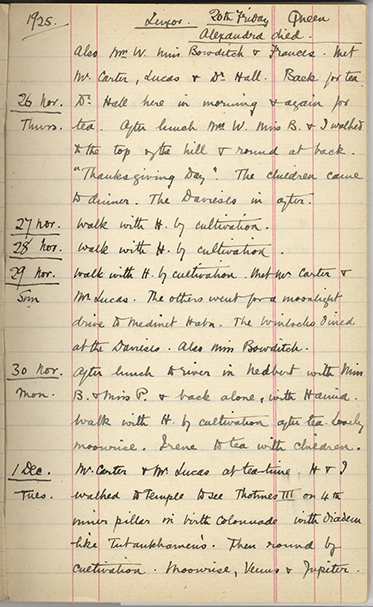 1925. Luxor. 20th Friday Queen
Alexandra died.
Also Mrs W. Miss Bowditch & Frances. Met
Mr Carter, Lucas & Dr Hall. Back for tea.
26 Nov. Dr Hall here in morning & again for
Thurs. tea. After lunch Mrs W. Miss B. & I walked
to the top of the hill & round at back.
"Thanksgiving Day". The children came
to dinner. The Davieses in after.
27 Nov. Walk with H. by cultivation.
28 Nov. Walk with H. by cultivation.
29 Nov. Walk with H. by cultivation. Met Mr Carter &
Sun Mr Lucas. The others went for a moonlight
drive to Medinet Habu. The Winlocks dined
at the Davieses. Also Miss Bowditch.
30 Nov. After lunch to river in with Miss
Mon. B. & Miss P. & back alone, with Hamid.
Walk with H. by cultivation after tea. Lovely
moonrise. Irene to tea with children.
1 Dec. Mr Carter & Mr Lucas at tea-time. H & I
Tues. walked to Temple to see Thotmes III on 4th
inner pillar in birth colonnade with diadem
like Tutankhamen's. Then round by
cultivation. Moonrise, Venus & Jupiter.